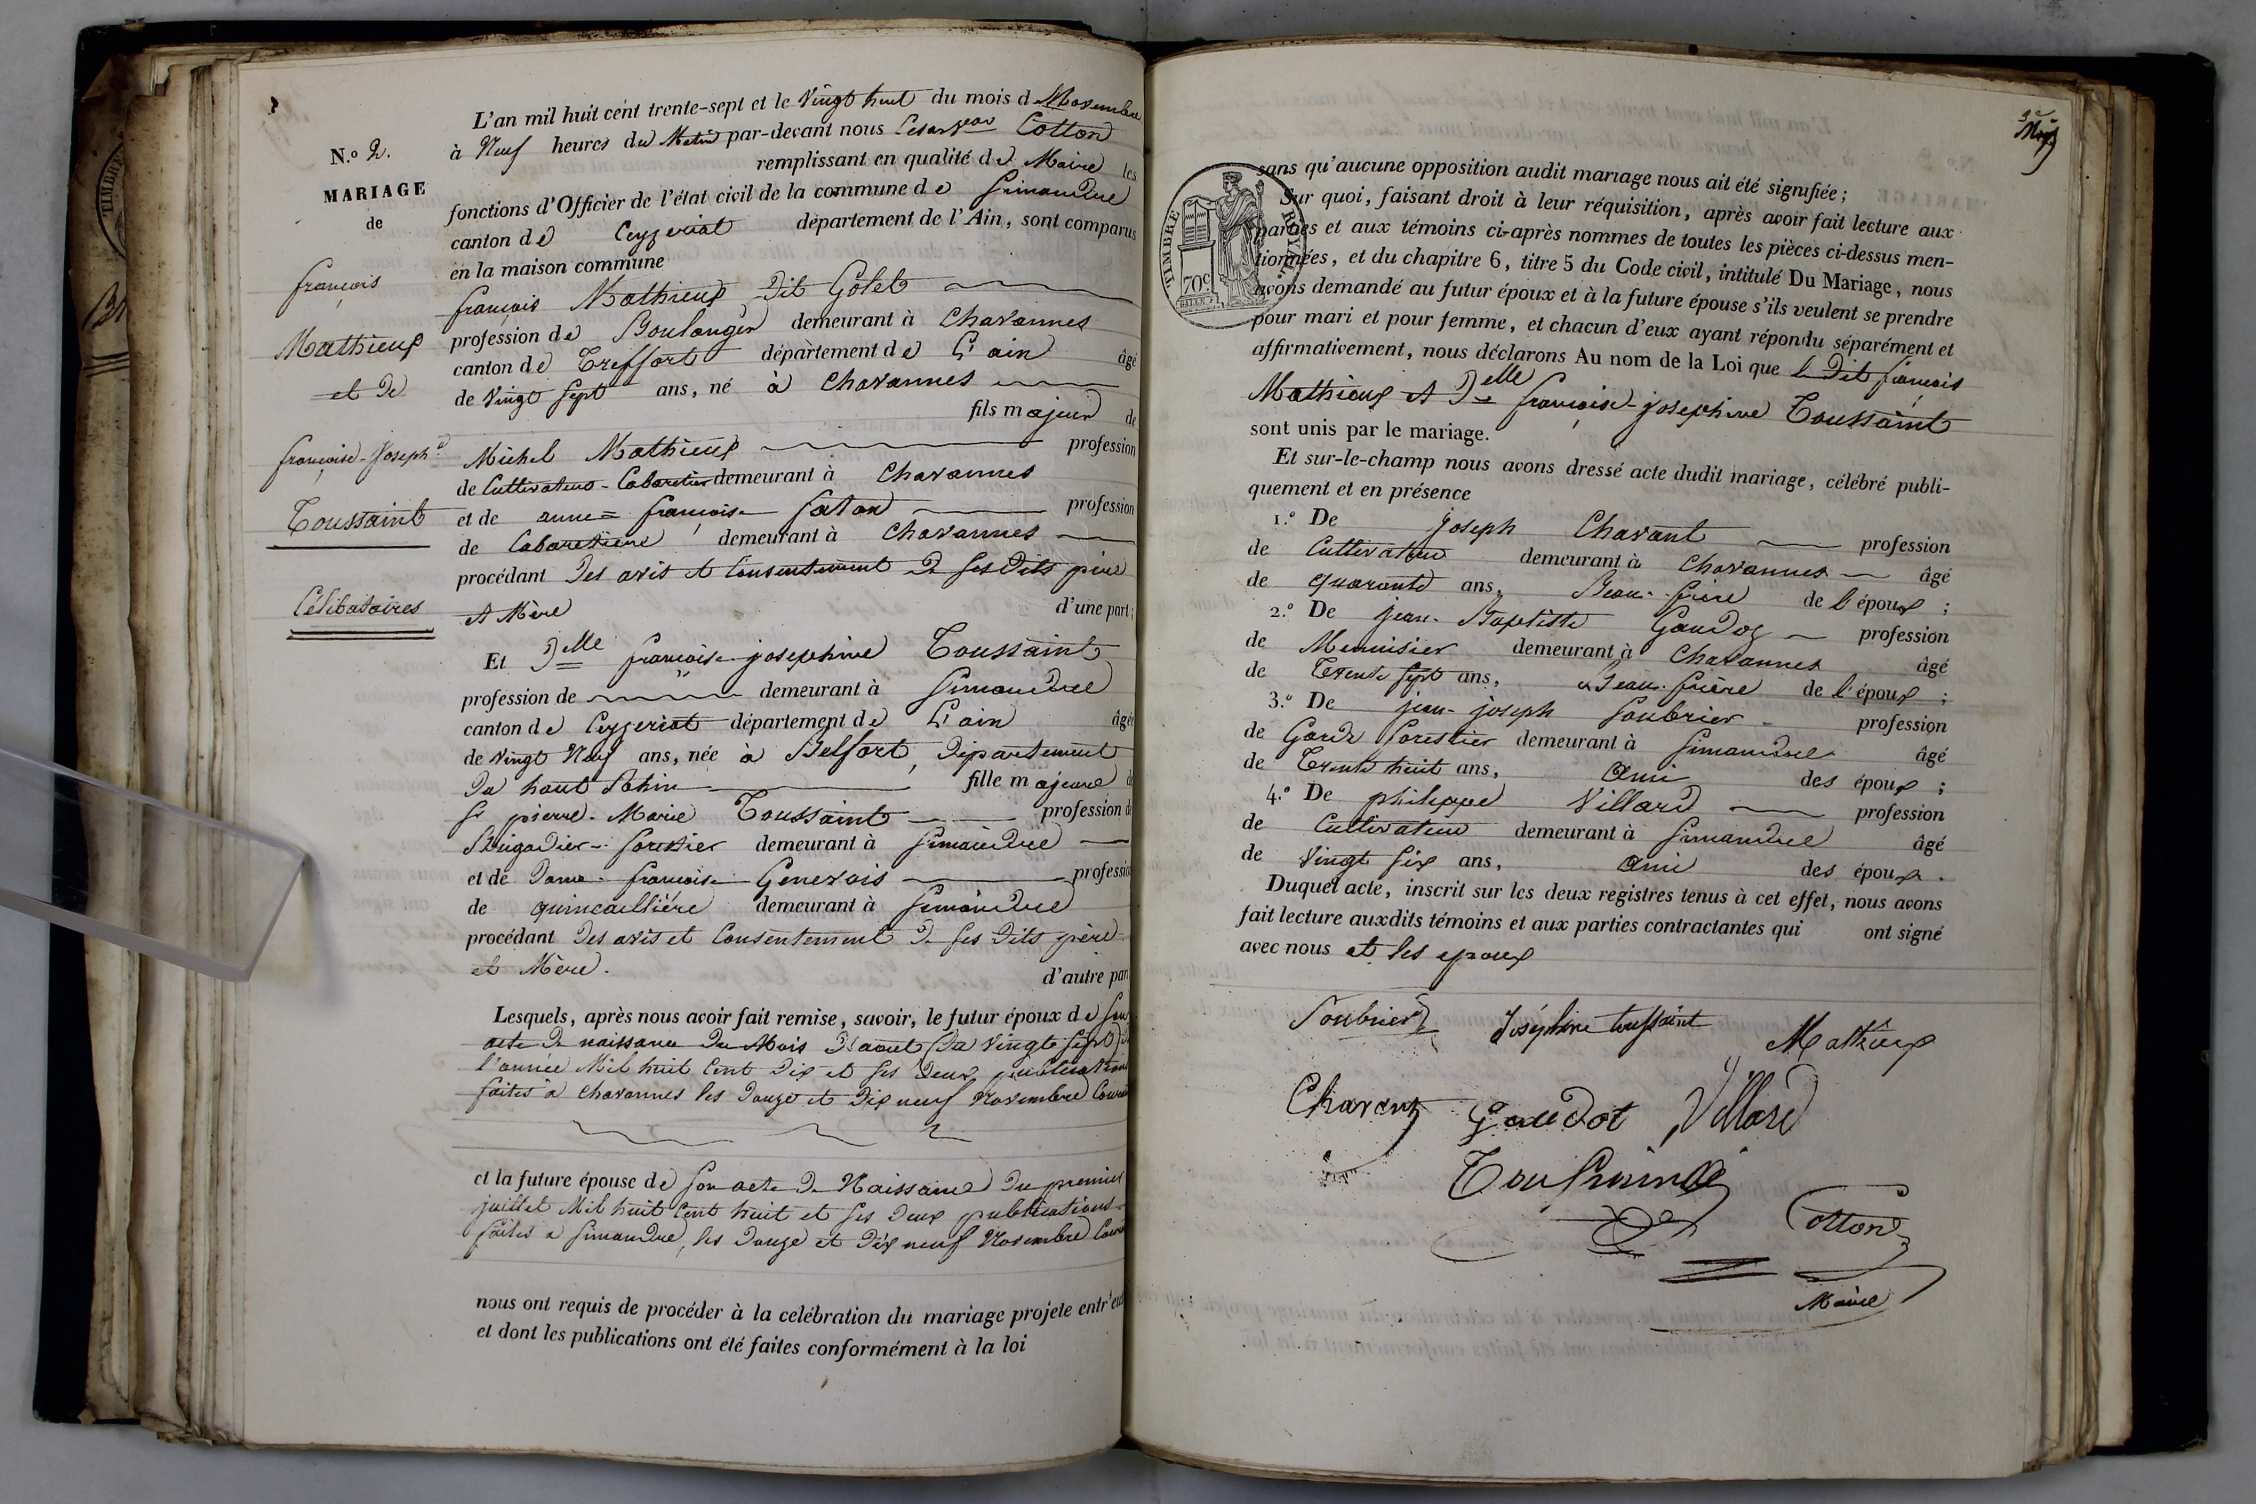 L'an mil huit cent trente-sept et le Vingt huit du mois de Novembre
N.º 2. à Neuf heures du Matin par-devant nous Cesar Jean Cotton
remplissant en qualité de Maire les
MARIAGE
fonctions d'Officier de l'état civil de la commune de Simandre
de
canton de Ceyzeriat département de l'Ain, sont comparus
en la maison commune
françois
françois Mathieux dit Golet
Mathieux
profession de Boulanger demeurant à Chavannes
canton de Treffort département de L'ain âgé
et de
de Vingt Sept ans, né à Chavannes
fils majeur de
françoise-Joseph.e
Michel Mathieux profession
de Cultivateur-Cabaretier demeurant à Chavannes
Toussaint
et de anne-françoise profession
de Cabaretiere demeurant à Chavannes
procédant des avis et Consentement de ses dits père
Célibataires
et Mère d'une part;
Et Delle françoise-josephine Toussaint
profession de demeurant à Simandre
canton de Ceyzeriat département de L'ain âgée
de Vingt Neuf ans, née à Belfort, département
du haut Rhin fille majeure de
Sr pierre-Marie Toussaint profession de
Brigadier-forestier demeurant à Simandre
et de Dame françoise Genevois profession
de quincaillière demeurant à Simandre
procédant des avis et Consentement de ses dits père
et Mère. d'autre part
Lesquels, après nous avoir fait remise, savoir, le futur époux de son
acte de naissance du Mois d'aout (du Vingt Sept) de
l'année Mil huit Cent dix et ses deux publications
faites à Chavannes les douze et dix neuf Novembre Courant
et la future épouse de son acte de Naissance du premier
juillet Mil huit Cent huit et ses deux publications
faites à Simandre, les douze et dix neuf Novembre Courant
nous ont requis de procéder à la celébration du mariage projeté entr'eux
et dont les publications ont été faites conformément à la loi
TIMBRE ROYAL
70c.
sans qu'aucune opposition audit mariage nous ait été signifiée;
Sur quoi, faisant droit à leur réquisition, après avoir fait lecture aux
parties et aux témoins ci-après nommés de toutes les pièces ci-dessus men-
tionnées, et du chapitre 6, titre 5 du Code civil, intitulé Du Mariage, nous
avons demandé au futur époux et à la future épouse s'ils veulent se prendre
pour mari et pour femme, et chacun d'eux ayant répondu séparément et
affirmativement, nous déclarons Au nom de la Loi que le dit françois
Mathieux et Delle françoise-josephine Toussaint
sont unis par le mariage.
Et sur-le-champ nous avons dressé acte dudit mariage, célébré publi-
quement et en présence
1.º De joseph Chavant profession
de Cultivateur demeurant à Chavannes âgé
de quarante ans, Beau-frère de l'époux;
2.º De jean-Baptiste Gaudoz profession
de Menuisier demeurant à Chavannes âgé
de Trente sept ans, Beau-frère de l'époux;
3.º De jean-joseph Soubrier profession
de Garde forestier demeurant à Simandre âgé
de Trente huit ans, ami des époux;
4.º De philippe Villard profession
de Cultivateur demeurant à Simandre âgé
de Vingt Six ans, ami des époux.
Duquel acte, inscrit sur les deux registres tenus à cet effet, nous avons
fait lecture auxdits témoins et aux parties contractantes qui ont signé
avec nous et les epoux
Soubrier Joséphine toussaint Mathieux
Chavant Gaudot Villard
Toussaint
Cotton
Maire